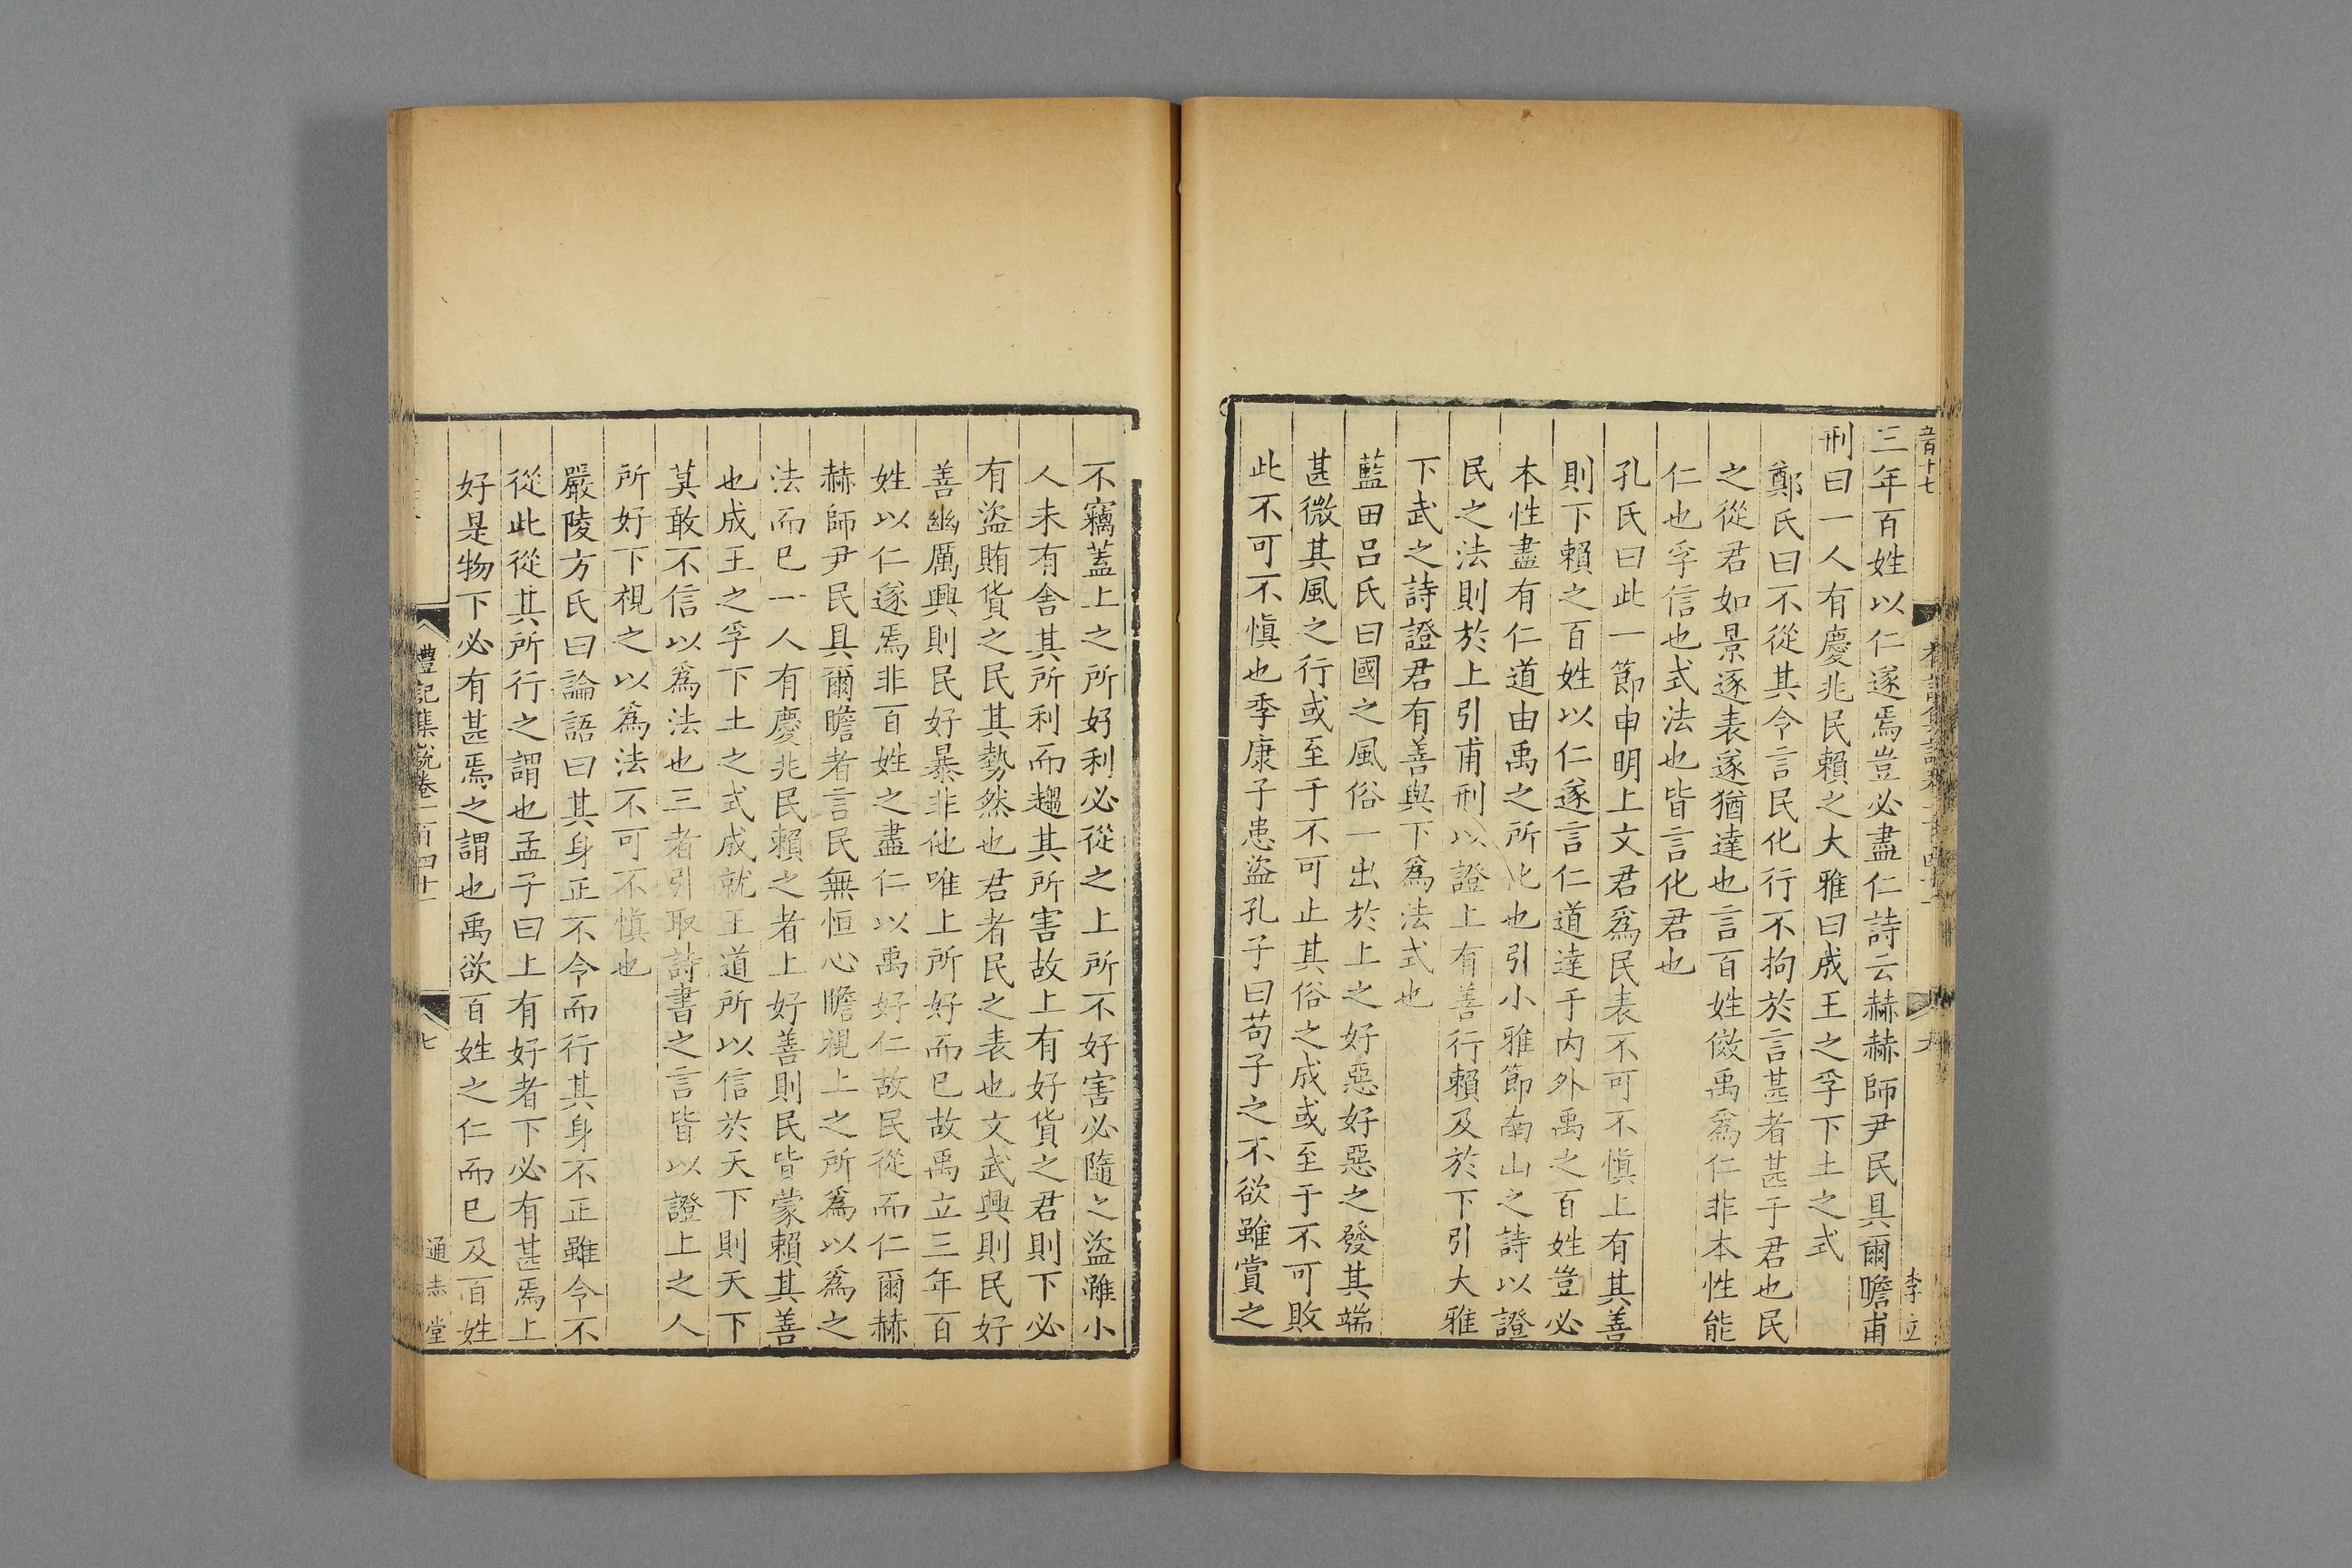 三年百姓以仁遂焉豈必盡仁詩云赫赫師尹民具爾瞻甫
刑曰一人有慶兆民賴之大雅曰成王之孚下土之式
鄭氏曰不從其令言民化行不拘於言甚者甚于君也民
之從君如景逐表遂猶達也言百姓傚禹爲仁非本性能
仁也孚信也式法也皆言化君也
孔氏曰此一節申明上文君爲民表不可不愼上有其善
則下賴之百姓以仁遂言仁道達于內外禹之百姓豈必
本性盡有仁道由禹之所化也引小雅節南山之詩以證
民之法則於上引甫刑以證上有善行賴及於下引大雅
下武之詩證君有善與下爲法式也
藍田呂氏曰國之風俗一出於上之好惡好惡之發其端
甚微其風之行或至于不可止其俗之成或至于不可敗
此不可不愼也季康子患盜孔子曰苟子之不欲雖賞之
李立
不竊蓋上之所好利必從之上所不好害必隨之盜雖小
人未有舍其所利而趨其所害故上有好貨之君則下必
有盜賄貨之民其勢然也君者民之表也文武興則民好
善幽厲興則民好暴非他唯上所好而已故禹立三年百
姓以仁遂焉非百姓之盡仁以禹好仁故民從而仁爾赫
赫師尹民具爾瞻者言民無恒心瞻視上之所爲以爲之
法而已一人有慶兆民賴之者上好善則民皆蒙賴其善
也成王之孚下土之式成就王道所以信於天下則天下
莫敢不信以爲法也三者引取詩書之言皆以證上之人
所好下視之以爲法不可不愼也
嚴陵方氏曰論語曰其身正不令而行其身不正雖令不
從此從其所行之謂也孟子曰上有好者下必有甚焉上
好是物下必有甚焉之謂也禹欲百姓之仁而已及百姓
禮記集說卷一百四十一
七
通志堂